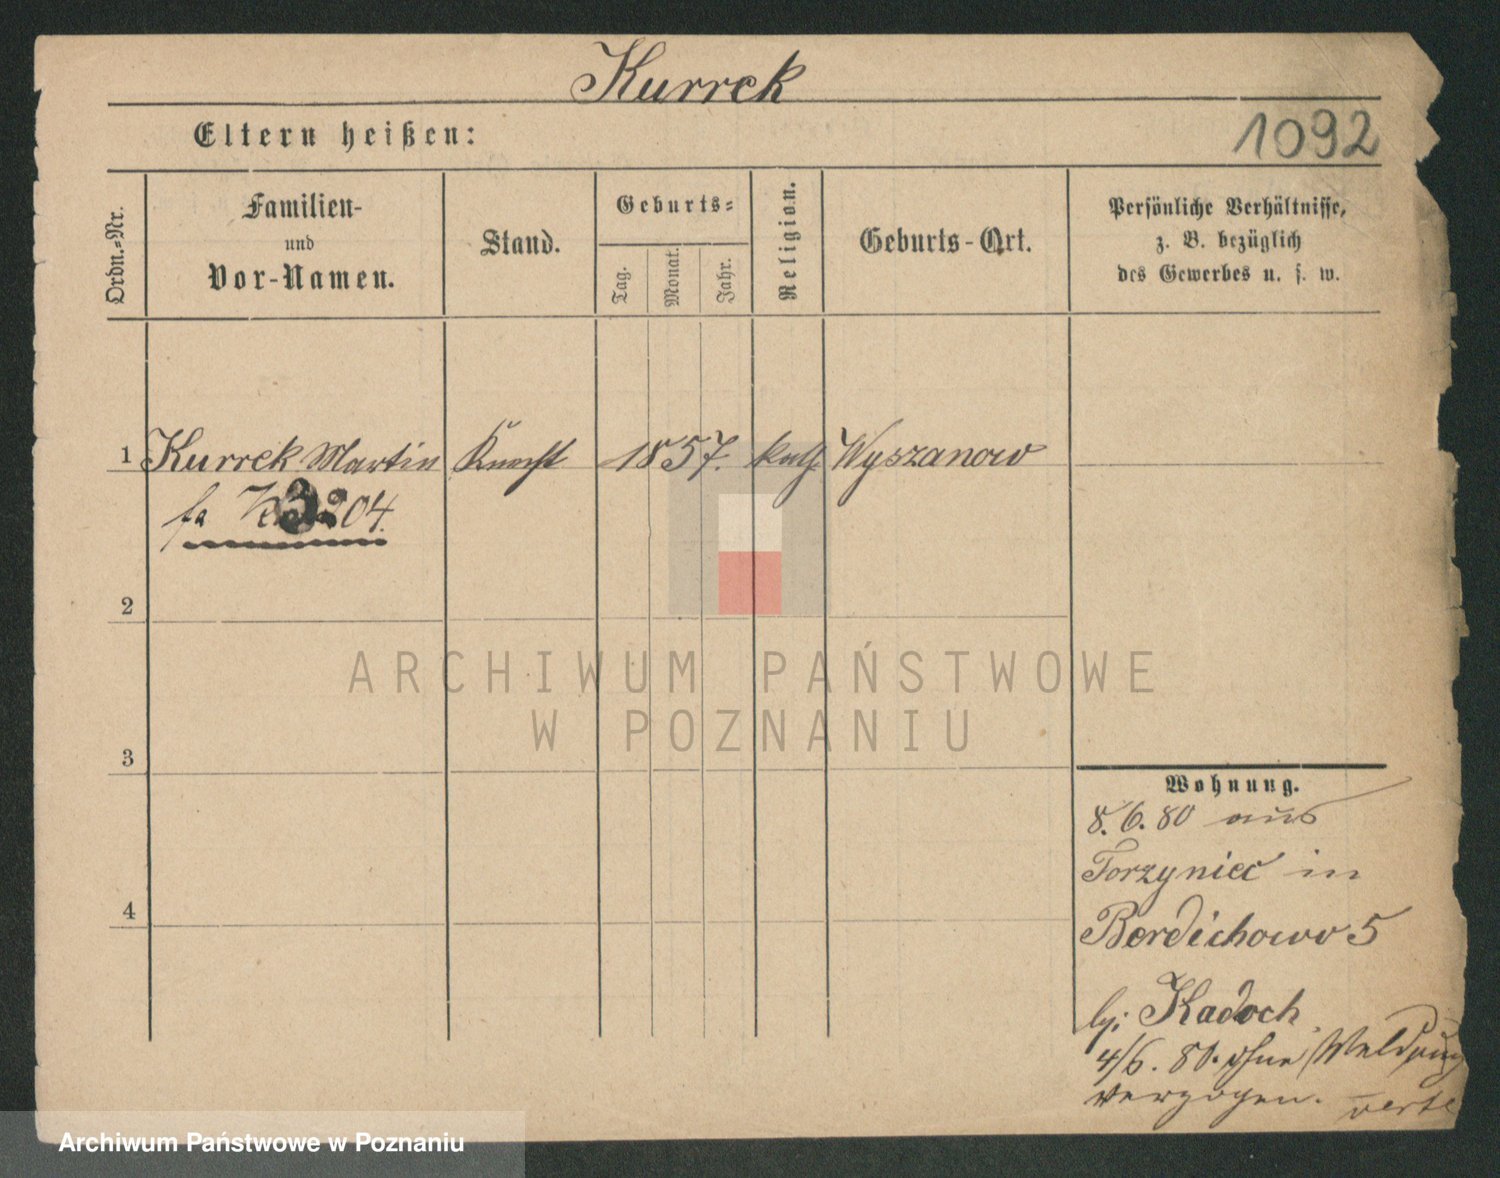 Kurrek
Eltern heißen:
1092
Ordn.-Nr.
Familien-
und
Vor-Namen.
Stand.
Geburts-
Tag.
Monat.
Jahr.
Religion.
Geburts-Ort.
Persönliche Verhältnisse,
z. B. bezüglich
des Gewerbes u. s. w.
1 Kurrek Martin Knecht 1857. kath Wyszanow
fa 3204.
2
3
4
Wohnung.
8.6.80 aus
Torzyniec in
Berdichowo 5
bei Kadoch
4/6. 80. ohne Meldung
verzogen. verte
ARCHIWUM PAŃSTWOWE
W POZNANIU
Archiwum Państwowe w Poznaniu